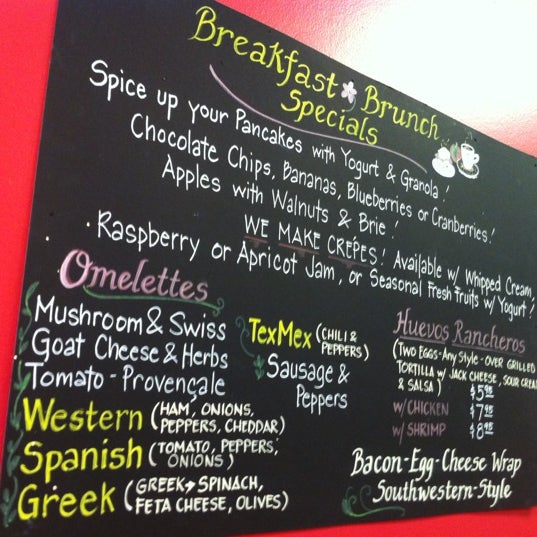 Breakfast Brunch
Specials
Spice up your Pancakes with Yogurt & Granola!
Chocolate Chips, Bananas, Blueberries or Cranberries!
Apples with Walnuts & Brie!
WE MAKE CRÊPES! Available w/ Whipped Cream,
Raspberry or Apricot Jam, or Seasonal Fresh Fruits w/ Yogurt!
Omelettes
Mushroom & Swiss
Goat Cheese & Herbs
Tomato-Provençale
Western (HAM, ONIONS,
PEPPERS, CHEDDAR)
Spanish (TOMATO, PEPPERS,
ONIONS)
Greek (GREEK → SPINACH,
FETA CHEESE, OLIVES)
TexMex (CHILI &
PEPPERS)
Sausage &
Peppers
Huevos Rancheros
(TWO EGGS-ANY STYLE-OVER GRILLED
TORTILLA w/ JACK CHEESE, SOUR CREA
& SALSA) $5.95
w/ CHICKEN $7.95
w/ SHRIMP $8.95
Bacon-Egg-Cheese Wrap
Southwestern-Style